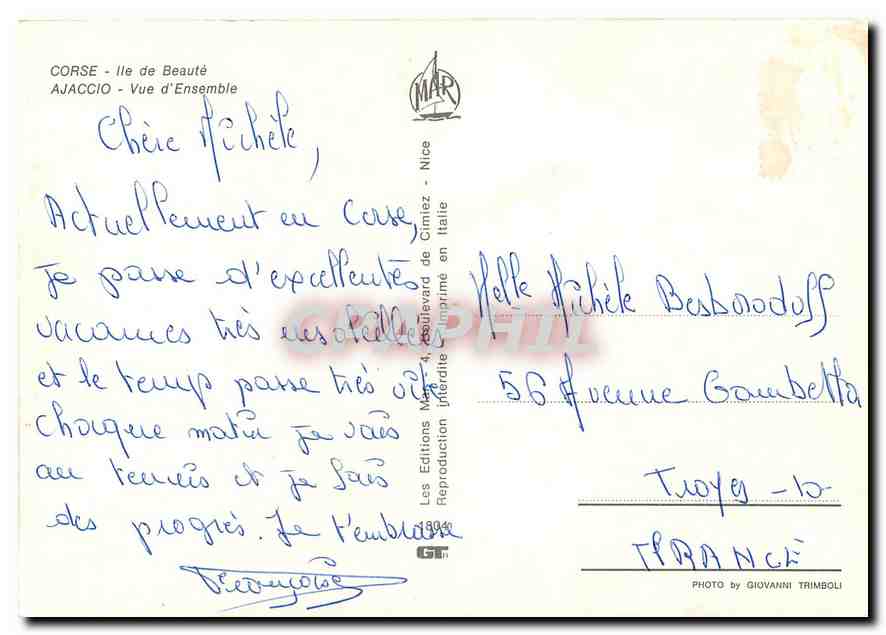 CORSE - Ile de Beauté
AJACCIO - Vue d'Ensemble
MAR
Chère Michèle,
Actuellement en Corse,
je passe d'excellentes
vacances très ensoleillées
et le temps passe très vite
chaque matin je vais
au tennis et je fais
des progrès. Je t'embrasse
Françoise
Les Editions Mar - 4, Boulevard de Cimiez - Nice
Reproduction interdite - Imprimé en Italie
1804
GT
CPAPHIL
Melle Michèle Besborodoff
56 Avenue Gambetta
Troyes - 10
FRANCE
PHOTO by GIOVANNI TRIMBOLI